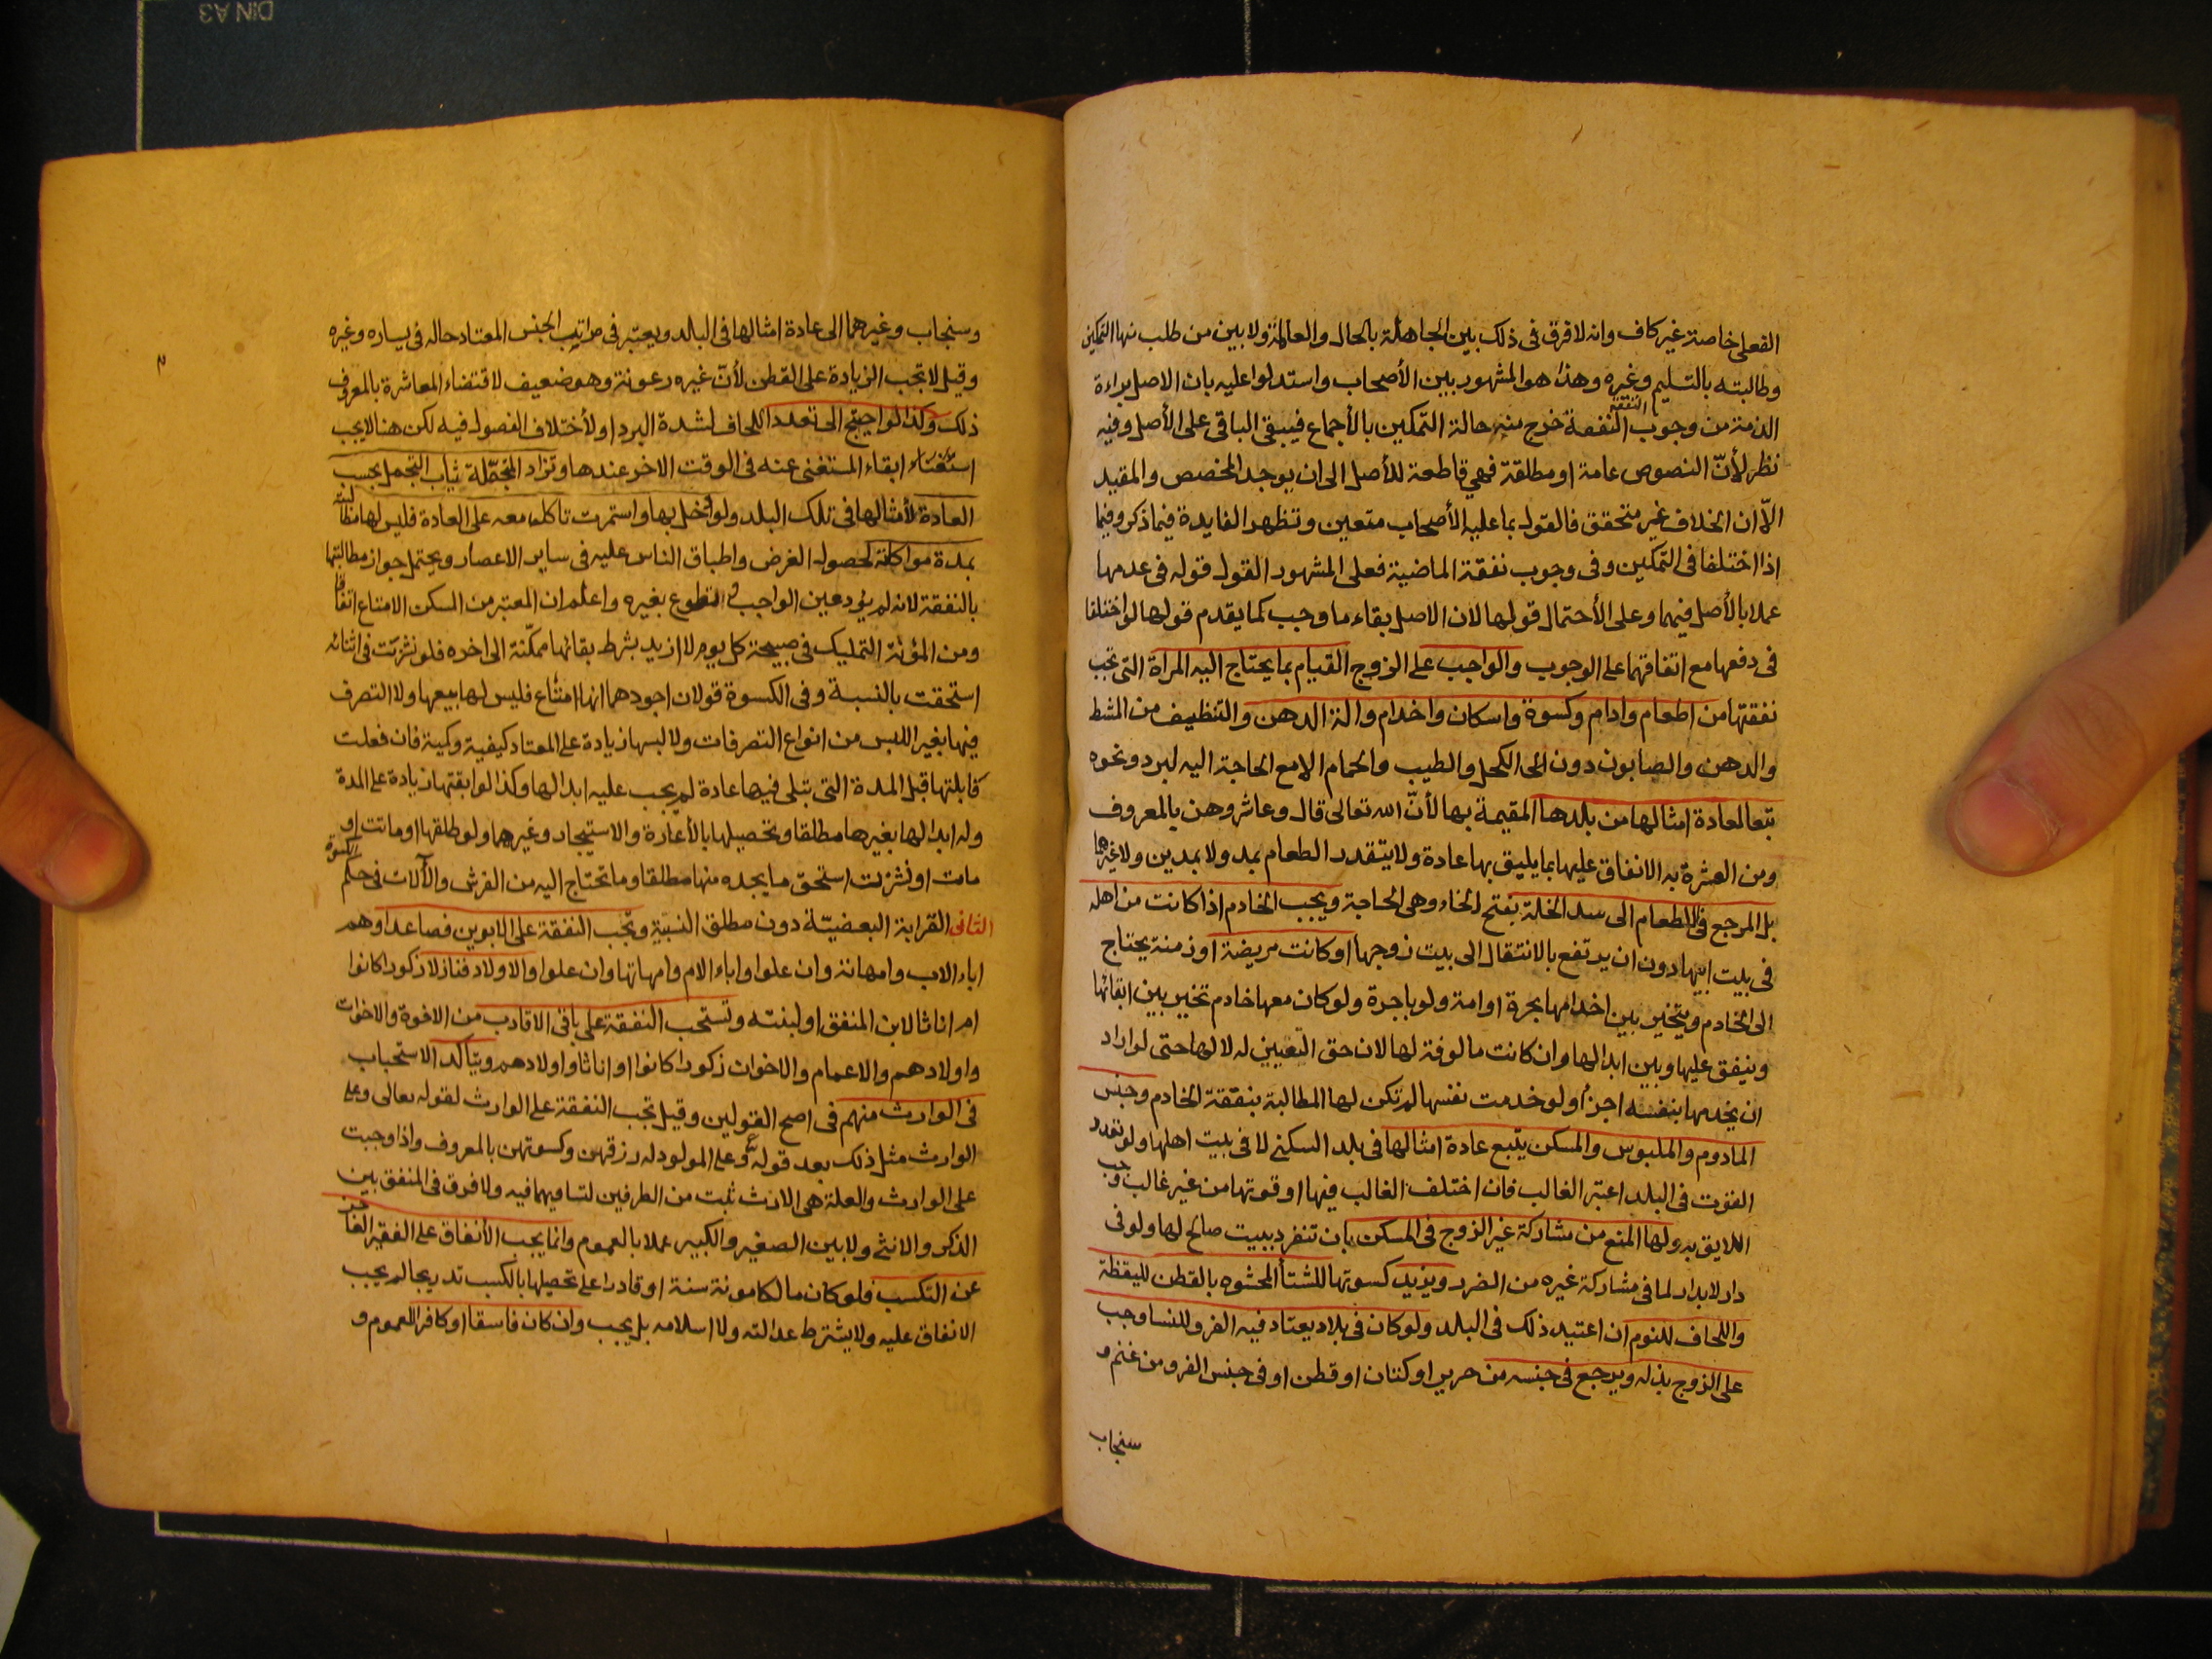 الفعلى خاصة غير كاف وانه لا فرق فى ذلك بين الجاهلة بالحال والعالمة ولا بين من طلب منها التمكين
وطالبته بالتسليم وغيره وهذا هو المشهور بين الأصحاب واستدلوا عليه بان الاصل براءة
الذمة من وجوب النفقة خرج منه حالة التمكين بالأجماع فيبقى الباقى على الأصل وفيه
نظر لأنّ النصوص عامة او مطلقة فهي قاطعة للأصل الى ان يوجد المخصص والمقيد
الّا ان الخلاف غير متحقق فالقول بما عليه الأصحاب متعين وتظهر الفايدة فيما ذكر وفيما
اذا اختلفا فى التمكين وفى وجوب نفقة الماضية فعلى المشهور القول قوله فى عدمها
عملا بالأصل فيهما وعلى الأحتمال قولها لان الاصل بقاء ما وجب كما يقدم قولها لو اختلفا
فى دفعها مع اتفاقهما على الوجوب والواجب على الزوج القيام بما يحتاج اليه المراة التى تجب
نفقتها من اطعام وادام وكسوة واسكان واخدام والة الدهن والتنظيف من المشط
والدهن والصابون دون الكحل والطيب والحمام الا مع الحاجة اليه لبرد ونحوه
تبعا لعادة امثالها من بلدها المقيمة بها لأنّ الله تعالى قال وعاشروهن بالمعروف
ومن العشرة به الانفاق عليها بما يليق بها عادة ولا يتقدر الطعام بمد ولا بمدين ولا غيرهما
بل المرجع فى الطعام الى سد الخلة بفتح الخاء وهى الحاجة ويجب الخادم اذا كانت من اهله
فى بيت ابيها دون ان يرتفع بالانتقال الى بيت زوجها او كانت مريضة او زمنة يحتاج
الى الخادم ويتخير بين اخدامها بحرة او امة ولو باجرة ولو كان معها خادم تخير بين ابقائها
وينفق عليها وبين ابدالها وان كانت مالوفة لها لان حق التعيين له لا لها حتى لو اراد
ان يخدمها بنفسه اجزأ ولو خدمت نفسها لم تكن لها المطالبة بنفقة الخادم وجنس
المادوم والملبوس والمسكن يتبع عادة امثالها فى بلد السكنى لا فى بيت اهلها ولو تعدد
القوت فى البلد اعتبر الغالب فان اختلف الغالب فيها او قوتها من غير غالب وجب
اللايق به ولها المنع من مشاركة غير الزوج فى المسكن بان تنفرد ببيت صالح لها ولو فى
دار لا بدار لما فى مشاركة غيره من الضرر ويزيد كسوتها للشتأ المحشوه بالقطن لليقظة
واللحاف للنوم ان اعتيد ذلك فى البلد ولو كان فى بلاد يعتاد فيه الفرو للنسا وجب
على الزوج بذله ويرجع فى جنسه من حرير او كتان او قطن او فى جنس الفرو من غنم و
سنجاب
وسنجاب وغيرهما الى عادة امثالها فى البلد ويعتبر فى مراتب الجنس المعتاد حاله فى يساره وغيره
وقيل لا تجب الزيادة على القطن لأنّ غيره رعونة وهو ضعيف لاقتضاء المعاشرة بالمعروف
ذلك وكذا لو احتيج الى تعدد اللحاف لشدة البرد او لأختلاف الفصول فيه لكن هنا لا يجب
استغناء ابقاء المستغنى عنه فى الوقت الاخر عندها وتزاد المتجمّلة ثياب التجمل بحسب
العادة لأمثالها فى تلك البلد ولو دخل بها واستمرت تاكل معه على العادة فليس لها مطالبته
بمدة مواكلته لحصول الغرض واطباق الناس عليه فى ساير الاعصار ويحتمل جواز مطالبتها
بالنفقة لانه لم يؤد عين الواجب و تطوع بغيره واعلم ان المعتبر من المسكن الامتاع اتفاقا
ومن المؤنة التمليك فى صبيحة كل يوم لا ازيد بشرط بقائها ممكّنة الى اخره فلو نشزت فى اثنائه
استحقت بالنسبة وفى الكسوة قولان اجودهما انها امتاع فليس لها بيعها ولا التصرف
فيها بغير اللبس من انواع التصرفات ولا لبسها زيادة على المعتاد كيفية وكمية فان فعلت
فابلتها قبل المدة التى تبلى فيها عادة لم يجب عليه ابدالها وكذا لو ابقتها زيادة على المدة
وله ابدالها بغيرها مطلقا وتحصيلها بالأعارة والاستيجار وغيرهما ولو طلقها او ماتت او
مات او نشزت استحق ما يجده منها مطلقا وما تحتاج اليه من الفرش والآلات فى حكم الكسوة
الثانى القرابة البعضيّة دون مطلق النسبة وتجب النفقة على الابوين فصاعدا وهم
اباء الاب وامهاته وان علوا واباء الام وامهاتها وان علوا والاولاد فنازلا ذكورا كانوا
ام اناثا لابن المنفق او لبنته وتستحب النفقة على باقى الاقارب من الاخوة والاخوات
واولادهم والاعمام والاخوات ذكورا كانوا او اناثا واولادهم ويتأكد الاستحباب
فى الوارث منهم فى اصح القولين وقيل تجب النفقة على الوارث لقوله تعالى وعلى
الوارث مثل ذلك بعد قوله وعلى المولود له رزقهن وكسوتهن بالمعروف واذا وجبت
على الوارث والعلة هى الارث ثبت من الطرفين لتساويهما فيه ولا فرق فى المنفق بين
الذكر والانثى ولا بين الصغير والكبير عملا بالعموم وانما يجب الأنفاق على الفقير العاجز
عن التكسب فلو كان مالكا مونة سنة او قادرا على تحصيلها بالكسب تدريجا لم يجب
الانفاق عليه ولا يشترط عدالته ولا اسلامه بل يجب وان كان فاسقا او كافرا للعموم و